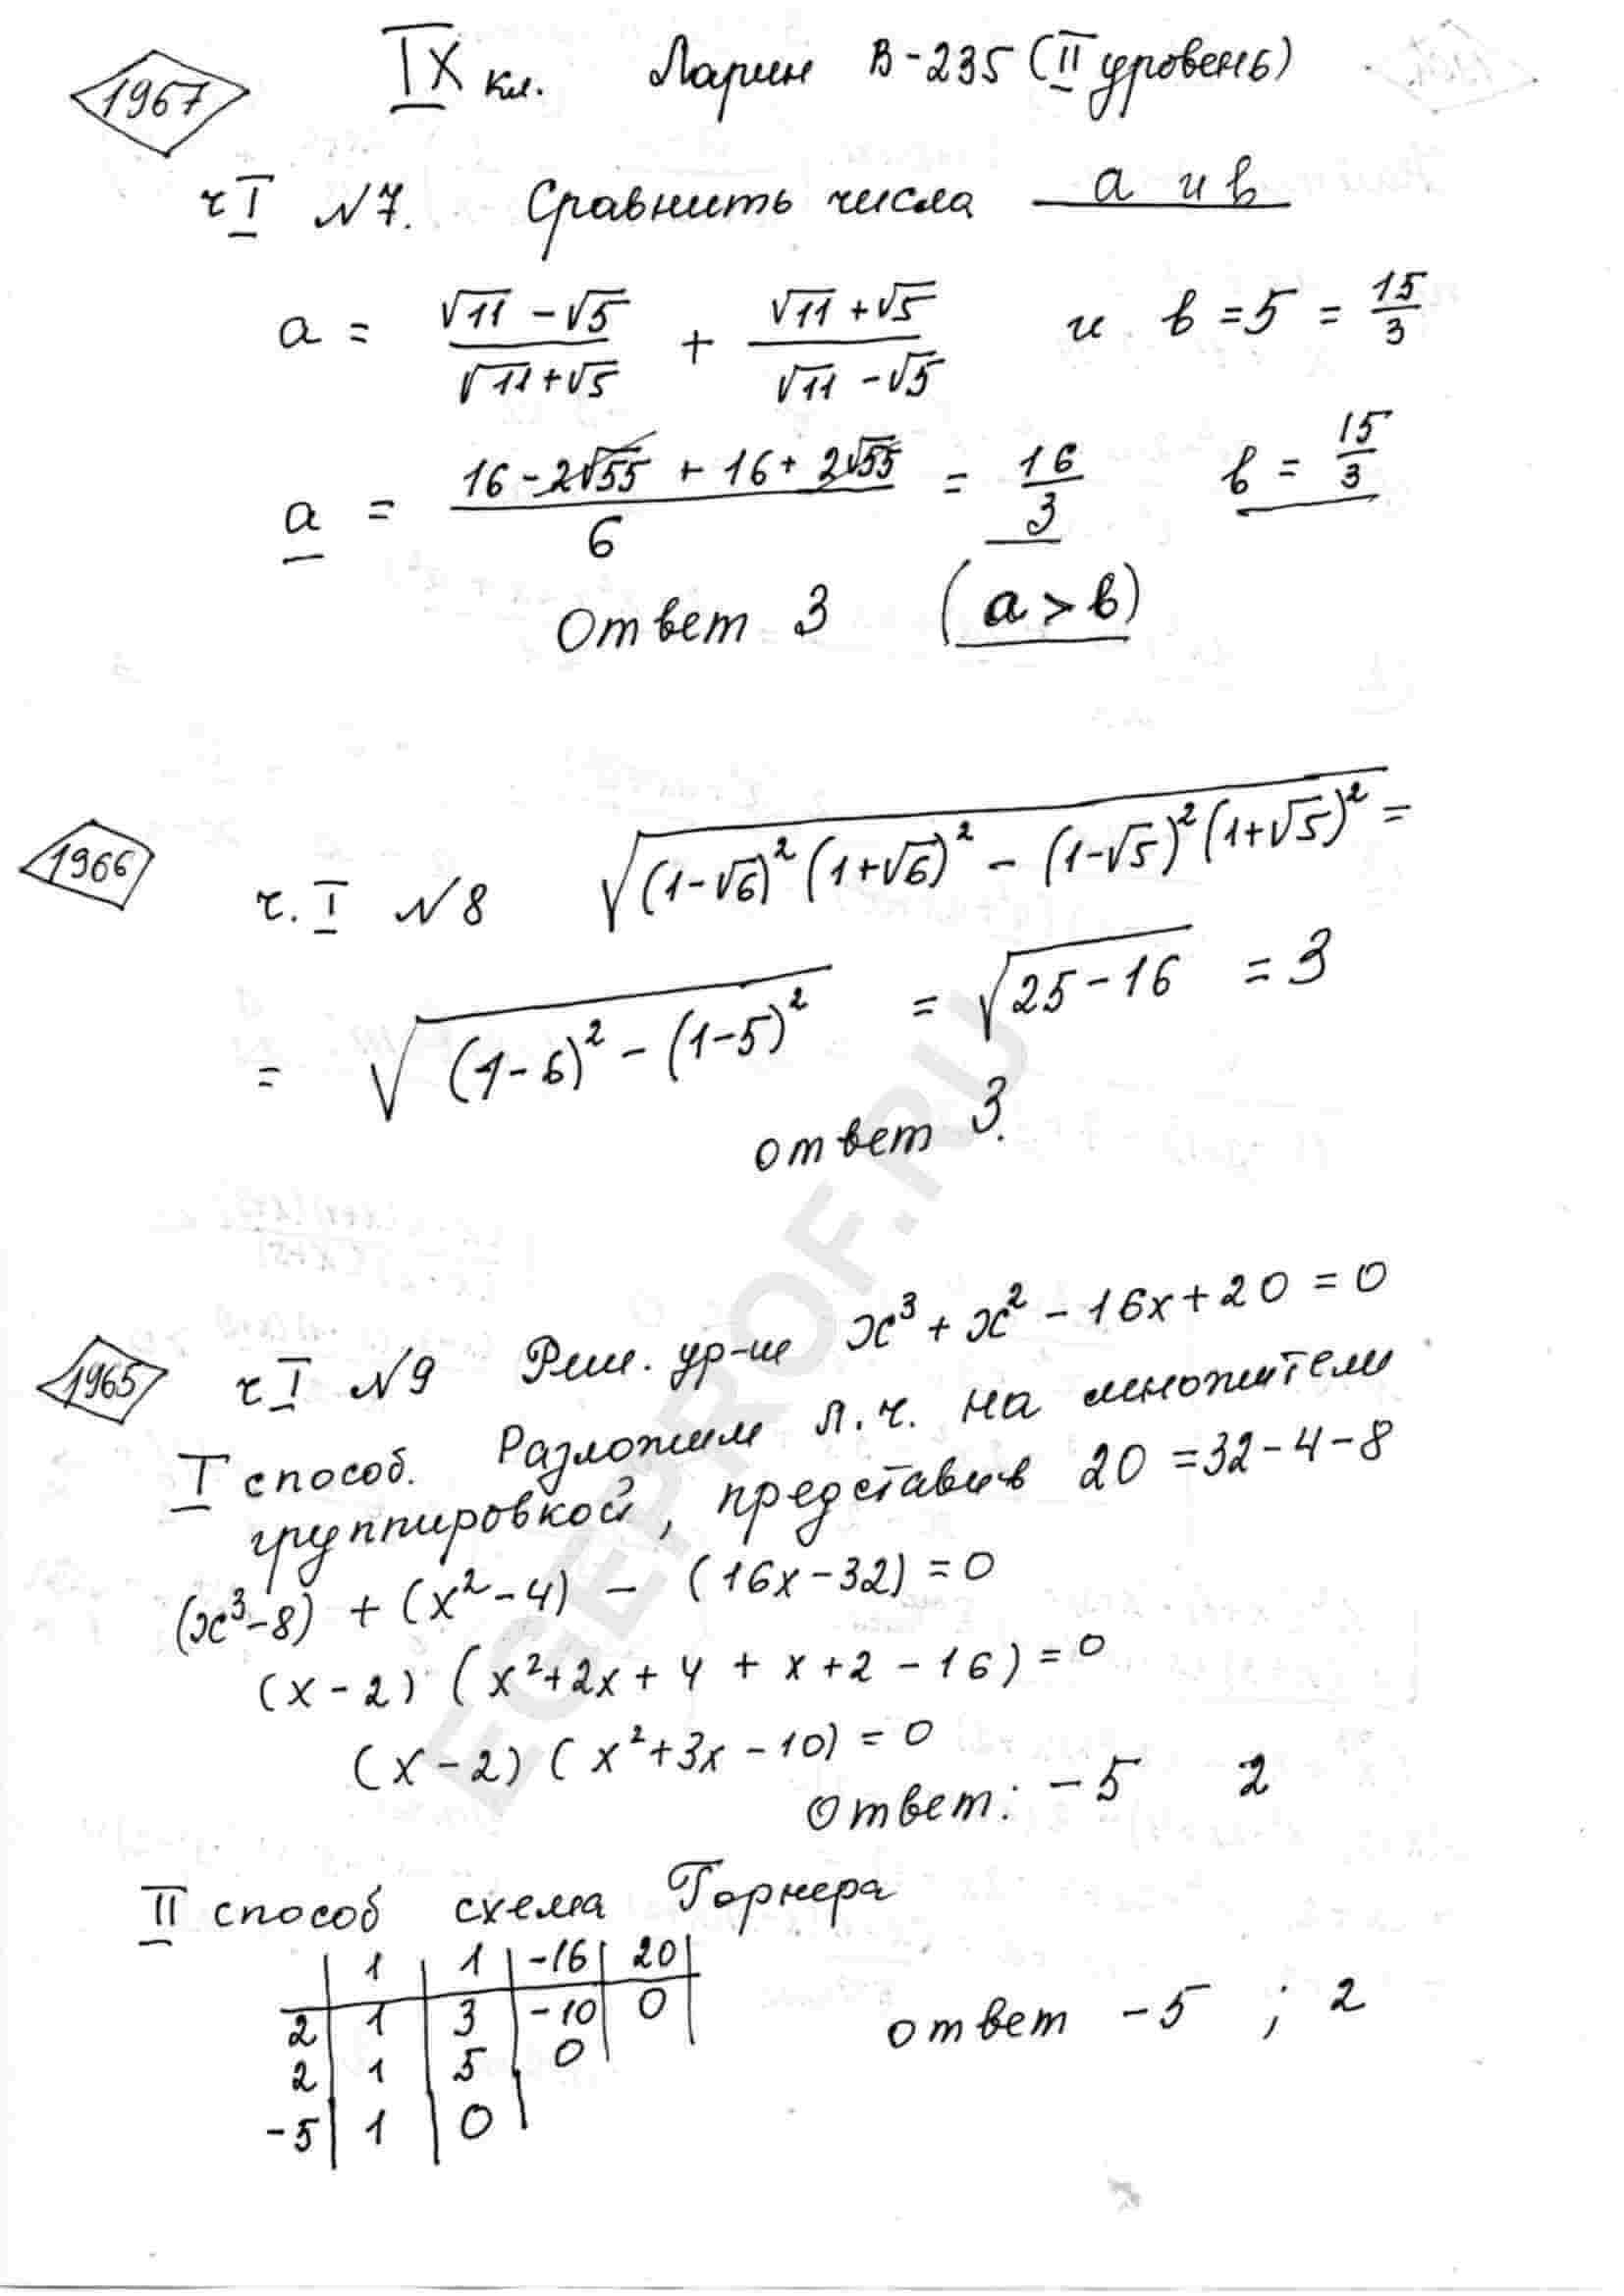 1967
IX кл. Ларин В-235 (II уровень)
ч I №7. Сравнить числа a и b
a = (√11 − √5)/(√11 + √5) + (√11 + √5)/(√11 − √5) и b = 5 = 15/3
a = (16 − 2√55 + 16 + 2√55)/6 = 16/3 b = 15/3
Ответ 3 (a > b)
1966
ч. I №8 √((1−√6)²(1+√6)² − (1−√5)²(1+√5)²) =
= √((1−6)² − (1−5)²) = √(25−16) = 3
ответ 3.
1965
ч I №9 Реш. ур-ие x³ + x² − 16x + 20 = 0
I способ. Разложим л.ч. на множители
группировкой, представив 20 = 32−4−8
(x³−8) + (x²−4) − (16x−32) = 0
(x−2) (x²+2x+4 + x+2 −16) = 0
(x−2) (x²+3x−10) = 0
Ответ: −5 2
II способ схема Горнера
1 1 −16 20
2 1 3 −10 0
2 1 5 0
ответ −5 ; 2
−5 1 0
EGEPROF.RU